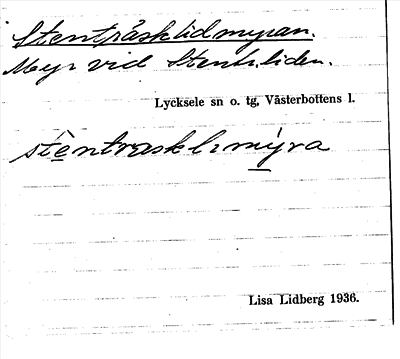 Stenträsklidmyran.
Myr vid Stentr.liden.
Lycksele sn o. tg, Västerbottens l.
stèntraskl₂mỳra
Lisa Lidberg 1936.